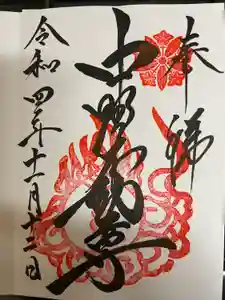 奉拝
中野不動尊
令和四年十一月十
日